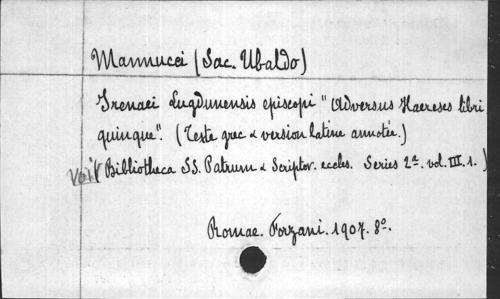 Mannucci (Sac. Ubaldo)
Irenaei Lugdunensis episcopi "Adversus Haereses libri
quinque". (Texte grec & version latine annotée.)
voir (Bibliotheca SS. Patrum & Scriptor. eccles. Series 2ª. vol. III. 1.)
Romae. Forzani. 1907. 8º.